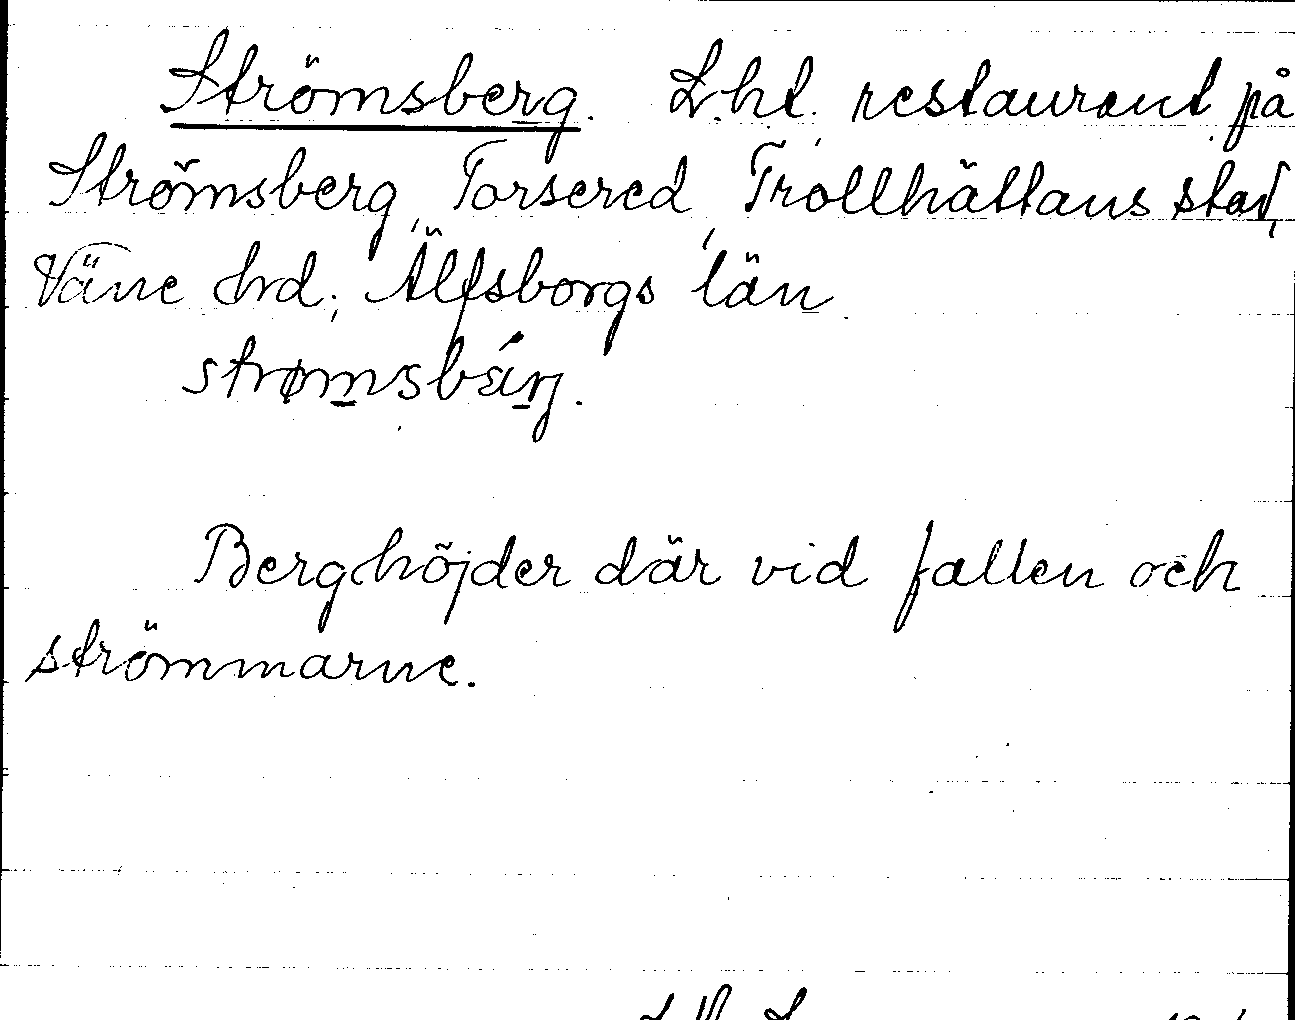 Strömsberg. L.ht. restaurant på
Strömsberg, Torsered, Trollhättans stad,
Väne hrd; Älfsborgs län
Berghöjder där vid fallen och
strömmarne.